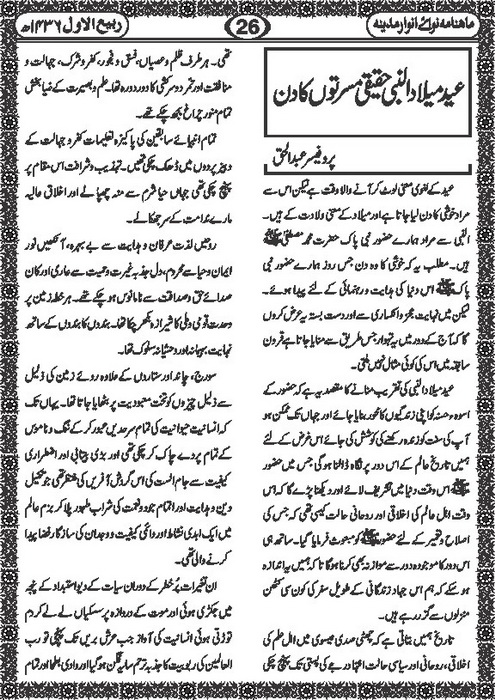 ماہنامہ نوائے انوار مدینہ
26
ربیع الاول ۱۴۳۶ھ
عید میلاد النبی حقیقی مسرتوں کا دن
پروفیسر عبدالحق
عید کے لغوی معنی لوٹ کر آنے والا وقت ہے لیکن اس سے
مراد خوشی کا دن لیا جاتا ہے اور میلاد کے معنی ولادت کے ہیں۔
النبی سے مراد ہمارے حضور نبی پاک حضرت محمد مصطفیٰ ﷺ
ہیں۔ مطلب یہ کہ خوشی کا وہ دن جس روز ہمارے حضور نبی
پاک ﷺ اس دنیا کی ہدایت و رہنمائی کے لئے پیدا ہوئے۔
لیکن میں نہایت عجز و انکساری سے اور دست بستہ یہ عرض کروں
گا کہ آج کے دور میں یہ تہوار جس طریق سے منایا جاتا ہے قرون
سابقہ میں اس کی کوئی مثال نہیں ملتی۔
عید میلاد النبی کی تقریب منانے کا مقصد یہ ہے کہ حضور کے
اسوہ حسنہ کو اپنی زندگیوں کا محور بنایا جائے اور جہاں تک ممکن ہو
آپ کی سنت کو زندہ رکھنے کی کوشش کی جائے اس غرض کے لئے
ہمیں تاریخ عالم کے اس دور پر نگاہ ڈالنا ہوگی جس میں حضور
ﷺ اس وقت دنیا میں تشریف لائے اور دیکھنا پڑے گا کہ اس
وقت اہل عالم کی اخلاقی اور روحانی حالت کیسی تھی کہ جس کی
اصلاح و تعمیر کے لئے حضور ﷺ کو مبعوث فرمایا گیا۔ ساتھ ہی
اس دور کا موجودہ دور سے موازنہ بھی کرنا ہوگا تا کہ ہمیں یہ اندازہ
ہو سکے کہ ہم اس جہاد زندگانی کے طویل سفر کی کون سی کٹھن
منزلوں سے گزر رہے ہیں۔
تاریخ ہمیں بتاتی ہے کہ چھٹی صدی عیسوی میں اہل علم کی
اخلاقی، روحانی اور سیاسی حالت انتہا درجے کی پستی تک پہنچ چکی
تھی۔ ہر طرف ظلم و عصیاں، فسق و فجور، کفر و شرک، جہالت و
منافقت اور تمرد و سرکشی کا دور دورہ تھا۔ علم و بصیرت کے ضیا بخش
تمام منور چراغ بجھ چکے تھے۔
تمام انبیائے سابقین کی پاکیزہ تعلیمات کفر و جہالت کے
دبیز پردوں میں ڈھک چکی تھیں۔ تہذیب و شرافت اس مقام پر
پہنچ چکی تھی جہاں حیا شرم سے منہ چھپا لے اور اخلاق عالیہ
مارے ندامت کے سر جھکا لے۔
روحیں لذت عرفان و ہدایت سے بے بہرہ، آنکھیں نور
ایمان و حیا سے محروم، دل جذبہ غیرت و حمیت سے عاری اور کان
صدائے حق و صداقت سے نامانوس ہو چکے تھے۔ ہر خطہ زمین پر
وحدت قومی و ملی کا شیرازہ بکھر چکا تھا۔ بندوں کا بندوں کے ساتھ
نہایت بہیمانہ اور وحشیانہ سلوک تھا۔
سورج، چاند اور ستاروں کے علاوہ روئے زمین کی ذلیل
سے ذلیل چیزوں کو تخت معبودیت پر بٹھایا جاتا تھا۔ یہاں تک
کہ انسانیت حیوانیت کی تمام سرحدیں عبور کر کے ننگ و ناموس
کے تمام پردے چاک کر چکی تھی اور بڑی بیتابی اور اضطراری
کیفیت سے جام الست کی اس گردش آفریں کی منتظر تھی جو تکمیل
دین و ہدایت اور اتمام جود و نعمت کی شراب طہور پلا کر بزم عالم
میں ایک ابدی نشاط اور دائمی کیفیت و وجدان کی سازگار فضا پیدا
کرنے والی تھی۔
ان تغیرات پر خطر کے دوران سیات کے دیو استبداد کے پنجہ
میں جکڑی ہوئی اور موت کے دروازہ پر سسکیاں لے لے کر دم
توڑتی ہوئی انسانیت کی آواز جب عرش بریں تک پہنچی تو رب
العالمین کی ربوبیت کا جذبہ ترحم سایہ فگن ہو گیا اور وادی بطحا اور تمام